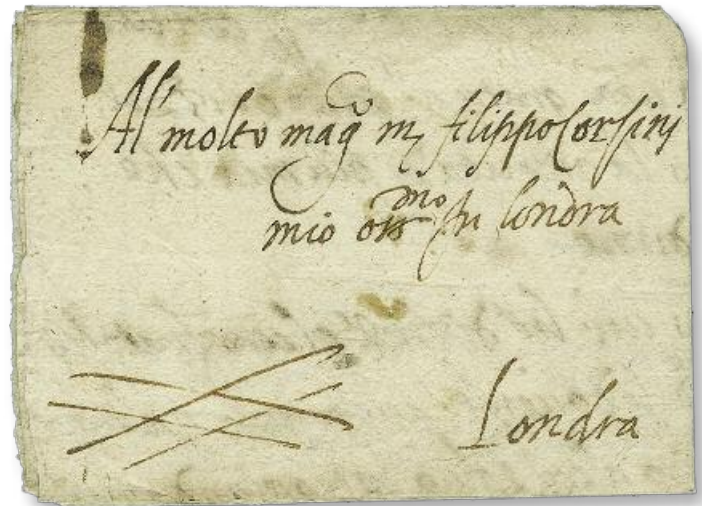 Al' molto mag.co m. filippo Corsinj
mio oss.mo In londra
Londra